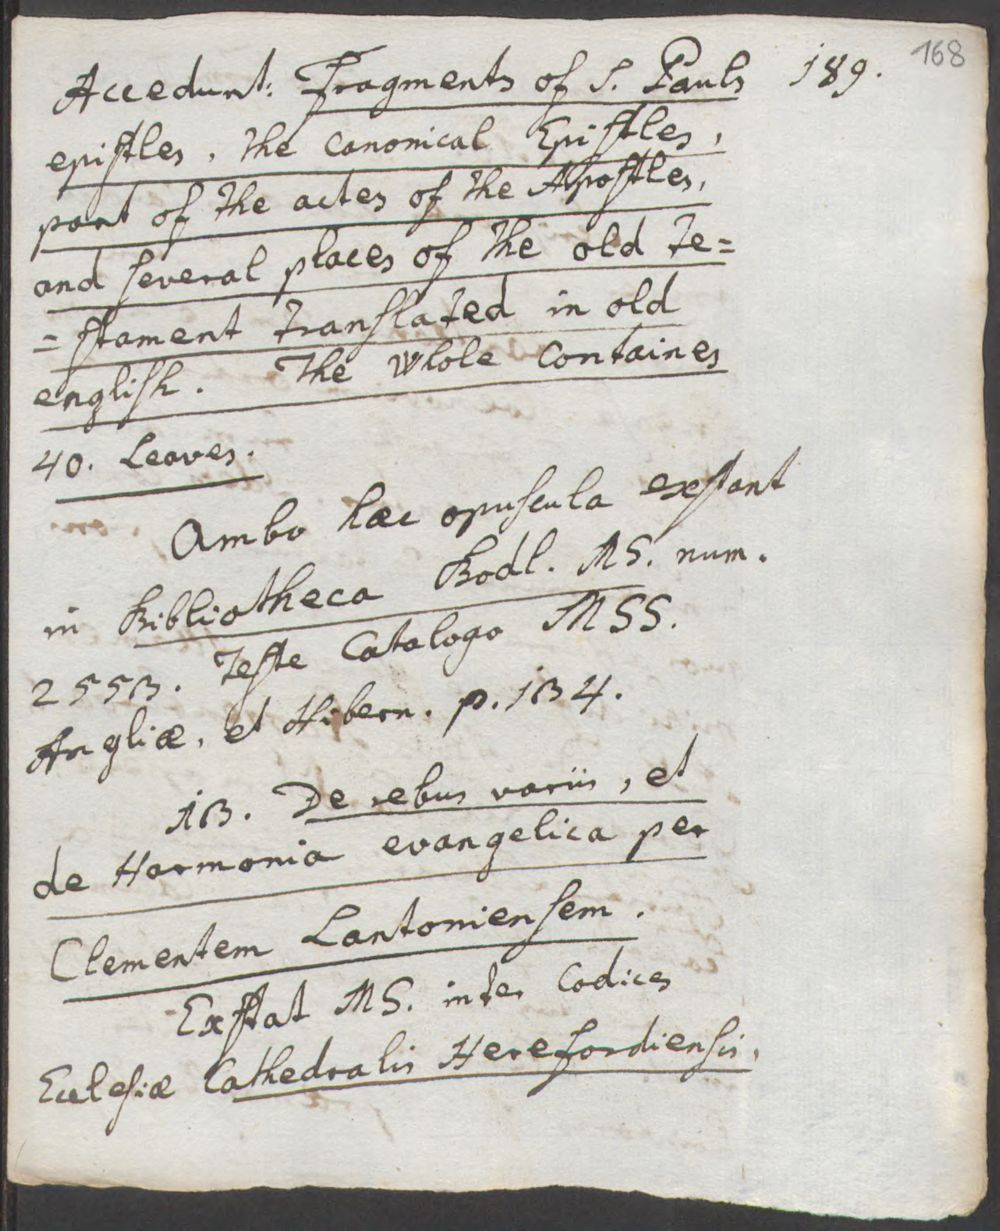 168
Accedunt: Fragments of S. Pauls 189.
epistles, the canonical Epistles,
part of the actes of the Apostles,
and several places of the old te=
=stament translated in old
english. The whole containes
40. Leaves.
Ambo hæc opuscula exstant
in Bibliotheca Bodl. MS. num.
Teste Catalogo MSS.
Angliæ, et Hibern. p. 134.
13. De rebus variis, et
de Harmonia evangelica per
Clementem Lantoniensem.
Exstat MS. inter Codices
Ecclesiæ Cathedralis Herefordiensis,